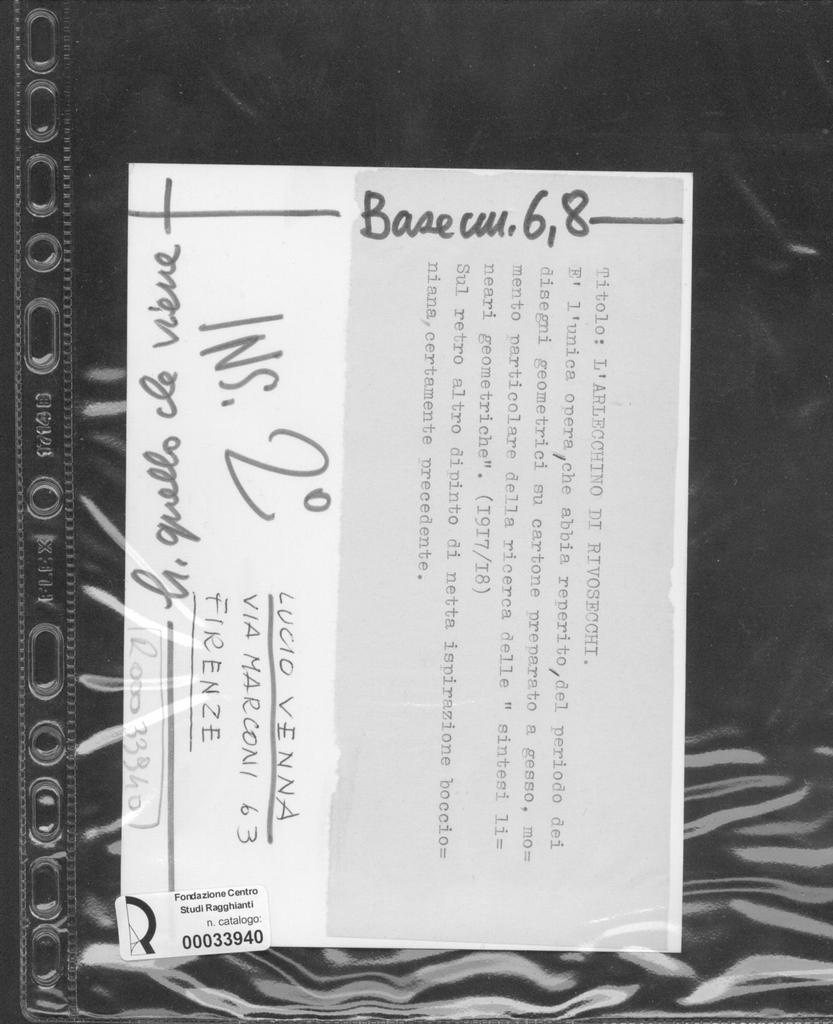 Base cm. 6,8
h. quello che viene
INS. 2°
Titolo: L'ARLECCHINO DI RIVOSECCHI.
E' l'unica opera,che abbia reperito,del periodo dei
disegni geometrici su cartone preparato a gesso, mo=
mento particolare della ricerca delle " sintesi li=
neari geometriche". (I9I7/I8)
Sul retro altro dipinto di netta ispirazione boccio=
niana,certamente precedente.
LUCIO VENNA
VIA MARCONI 63
FIRENZE
R0033940
Fondazione Centro
Studi Ragghianti
n. catalogo:
00033940